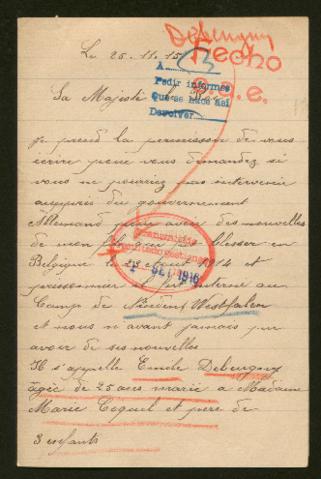 Debeugny
Hecho
Le 25.11.15
A
Pedir informes
Que se hace así
Devolver
Sa Majesté le
Je prend la permission de vous
écrire pour vous demandez si
vous ne pourriez pas intervenir
auprès du gouvernement
Allemand pour avoir des nouvelles
de mon fils qui fut blesser en
Belgique le 23 Aout 1914 et
prisonnier il fut interné au
Camp de Westfalen
et nous ne avant jamais pu
avoir de ses nouvelles
Il s'appelle Emile Debeugny
agée de 25 ans marié a Madame
Marie Coquel et père de
3 enfants
1916